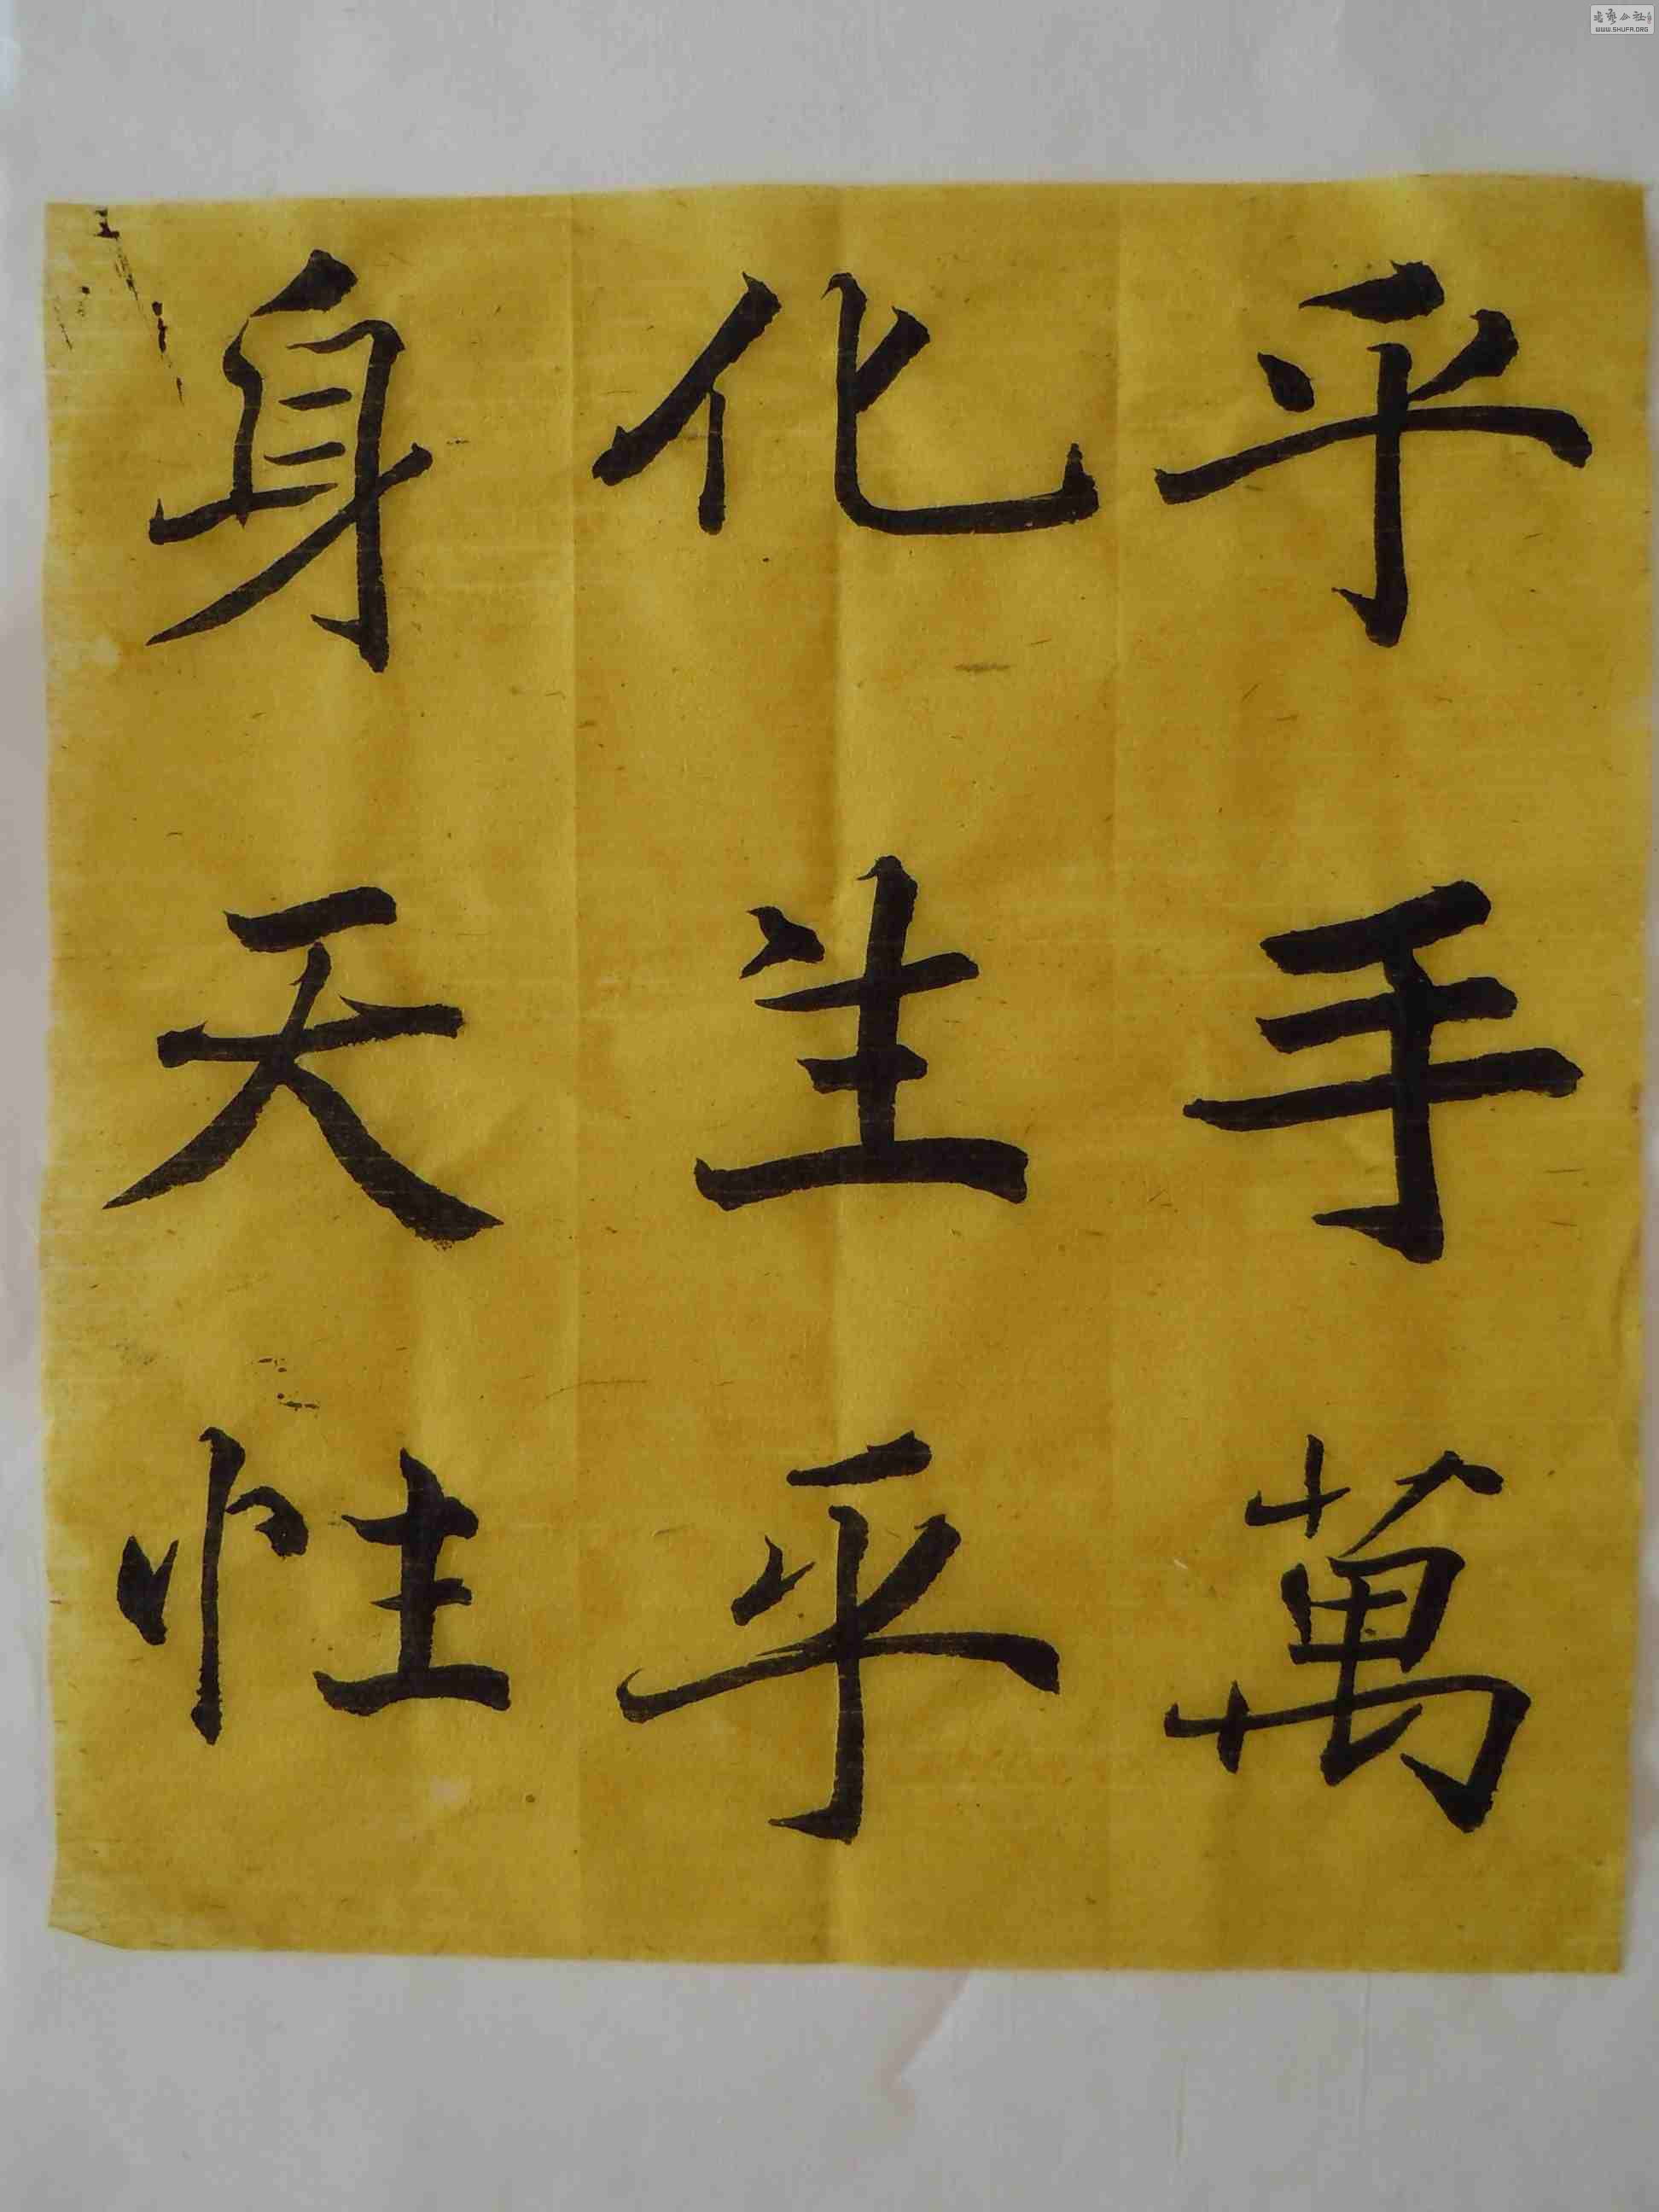 乎手萬
化生乎
身天性
書藝公社
WWW.SHUFA.ORG